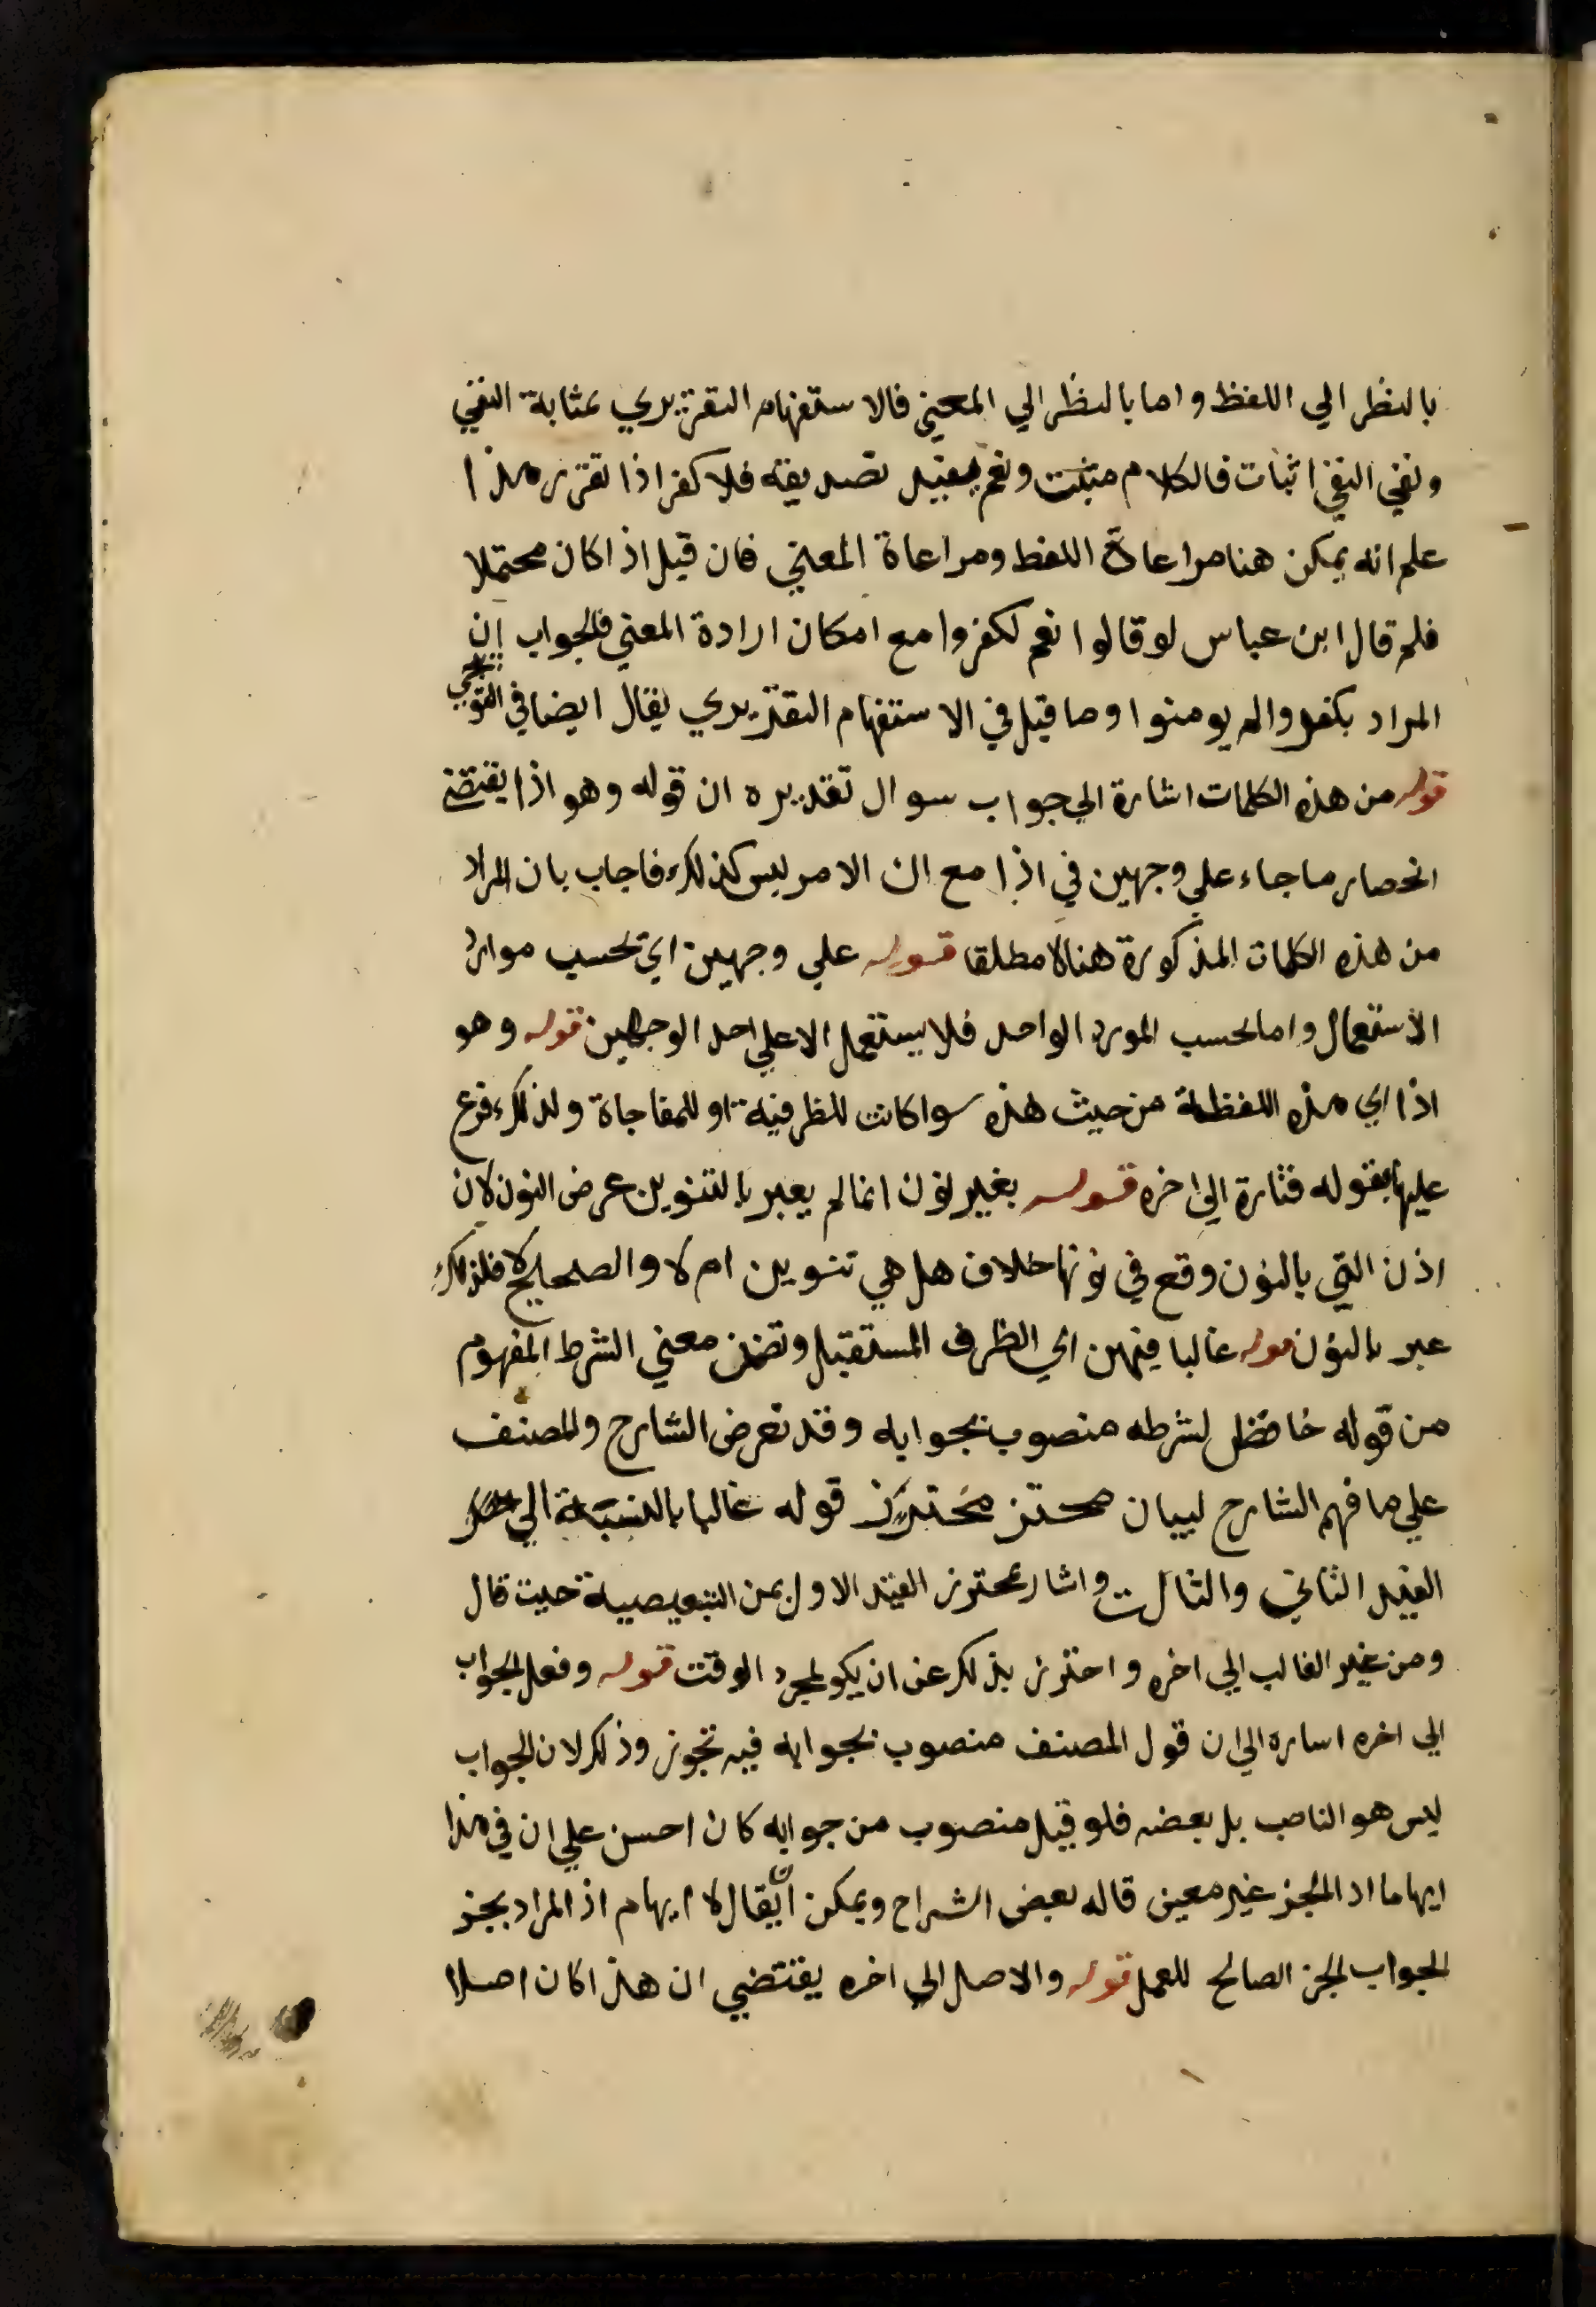 بالنظر الي اللفظ واما بالنظر الي المعني فالاستفهام التقريري بمثابة النفي
ونفي النفي اثبات فالكلام مثبت ونعم بعده تصديقه فلا كفر اذا تقرر هذا
علم انه يمكن هنا مراعاة اللفظ ومراعاة المعني فان قيل اذا كان محتملا
فلم قال ابن عباس لو قالوا نعم لكفروا مع امكان ارادة المعني فالجواب ان
المراد بكفروا لم يومنوا وما قيل في الاستفهام التقريري يقال ايضا في التوبيخي
قوله من هذه الكلمات اشارة الي جواب سوال تقديره ان قوله وهو اذا يقتضي
انحصار ما جاء علي وجهين في اذا مع ان الامر ليس كذلك فاجاب بان المراد
من هذه الكلمات المذكورة هنا لا مطلقا قوله علي وجهين اي بحسب موارد
الاستعمال واما بحسب المورد الواحد فلا يستعمل الا علي احد الوجهين قوله وهو
اذا اي هذه اللفظة من حيث هذه سوا كانت للظرفية او للمفاجاة ولذلك فرع
عليها بقوله فتارة الي اخره قوله بغير نون انما لم يعبر بالتنوين عوض النون لان
اذن التي بالنون وقع في نونها خلاف هل هي تنوين ام لا والصحيح لا فلذلك
عبر بالنون قوله غالبا فيهن اي الظرف المستقبل وتضمن معني الشرط المفهوم
من قوله خافض لشرطه منصوب بجوابه وقد تعرض الشارح والمصنف
علي ما فهم الشارح لبيان محترز قوله غالبا بالنسبة الي
القيد الثاني والثالث واشار لمحترز القيد الاول بمن التبعيضية حيث قال
ومن غير الغالب الي اخره واحترز بذلك عن ان يكو لمجرد الوقت قوله وفعل الجواب
الي اخره اسارة الي ان قول المصنف منصوب بجوابه فيه تجوز وذلك لان الجواب
ليس هو الناصب بل بعضه فلو قيل منصوب من جوابه كان احسن علي ان في هذا
ايهاما اد الجز غير معين قاله بعض الشراح ويمكن ان يقال لا ايهام اذ المراد بجز
الجواب الجز الصالح للعمل قوله والاصل الي اخره يقتضي ان هذا كان اصلا